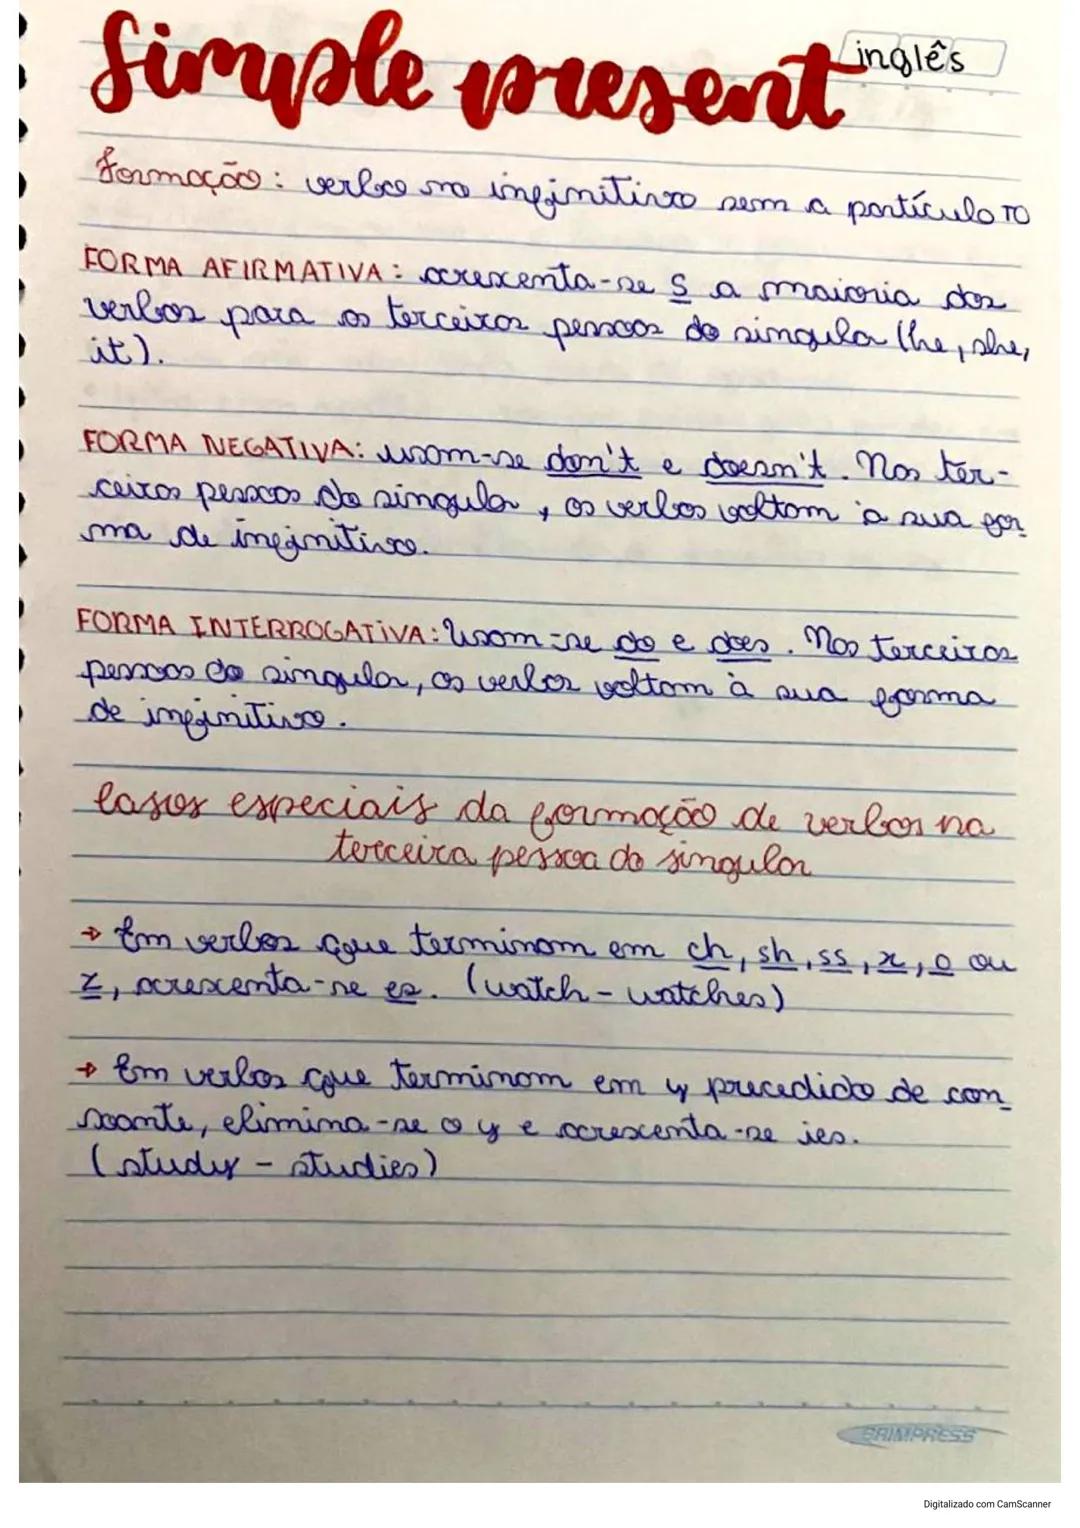 Simple present
inglês
Formação: verbo no infinitivo sem a partícula TO
FORMA AFIRMATIVA: acrescenta-se S a maioria dos
verbos para as terceiras pessoas do singular (he, she,
it).
FORMA NEGATIVA: usam-se don't e doesn't. Nas ter-
ceiras pessoas do singular, os verbos voltam à sua for
ma de infinitivo.
FORMA INTERROGATIVA: Usam-se do e does. Nas terceiras
pessoas do singular, os verbos voltam à sua forma
de infinitivo.
Casos especiais da formação de verbos na
terceira pessoa do singular
→ Em verbos que terminam em ch, sh, ss, x, o ou
z, acrescenta-se es. (watch - watches)
→ Em verbos que terminam em y precedido de con
soante, elimina-se o y e acrescenta-se ies.
(study - studies)
BRIMPRESS
Digitalizado com CamScanner